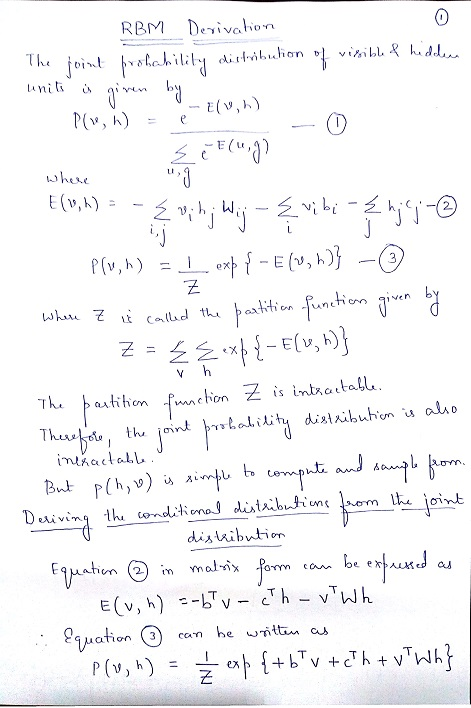 ①
RBM Derivation
The joint probability distribution of visible & hidden
units is given by
P(v, h) = e^{-E(v,h)} / Σ_{u,g} e^{-E(u,g)} — ①
where
E(v,h) = - Σ_{i,j} v_i h_j W_ij - Σ_i v_i b_i - Σ_j h_j c_j - ②
P(v,h) = 1/Z exp{-E(v,h)} — ③
where Z is called the partition function given by
Z = Σ_v Σ_h exp{-E(v,h)}
The partition function Z is intractable.
Therefore, the joint probability distribution is also
intractable.
But p(h,v) is simple to compute and sample from.
Deriving the conditional distributions from the joint
distribution
Equation ② in matrix form can be expressed as
E(v,h) = -b^T v - c^T h - v^T Wh
∴ Equation ③ can be written as
P(v,h) = 1/Z exp{+b^T v + c^T h + v^T Wh}